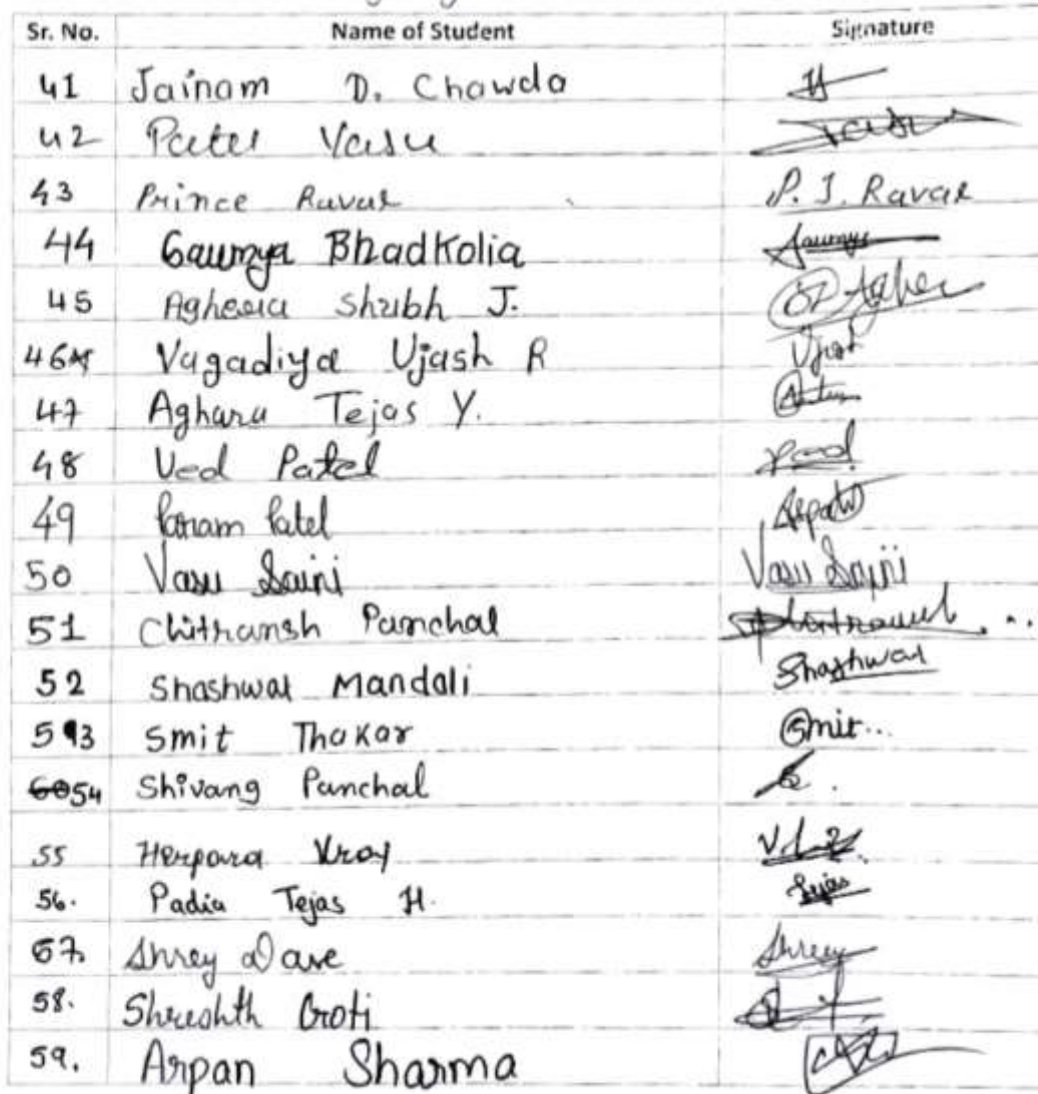 Sr. No. Name of Student Signature
41 Jainam D. Chawda
42 Patel Vasu Vasu
43 Prince Raval P. J. Raval
44 Saumya Bhadkolia Saumya
45 Agheria Shubh J.
46 Vagadiya Ujash R Ujash
47 Aghara Tejas Y.
48 Ved Patel Ved
49 Param Patel
50 Vasu Saini Vasu Saini
51 Chithransh Panchal
52 Shashwat Mandali Shashwat
53 Smit Thakar Smit..
54 Shivang Panchal
55 Herpara
56. Padia Tejas H. Tejas
57. Shrey Dave Shrey
58. Shreshth Goti
59. Arpan Sharma